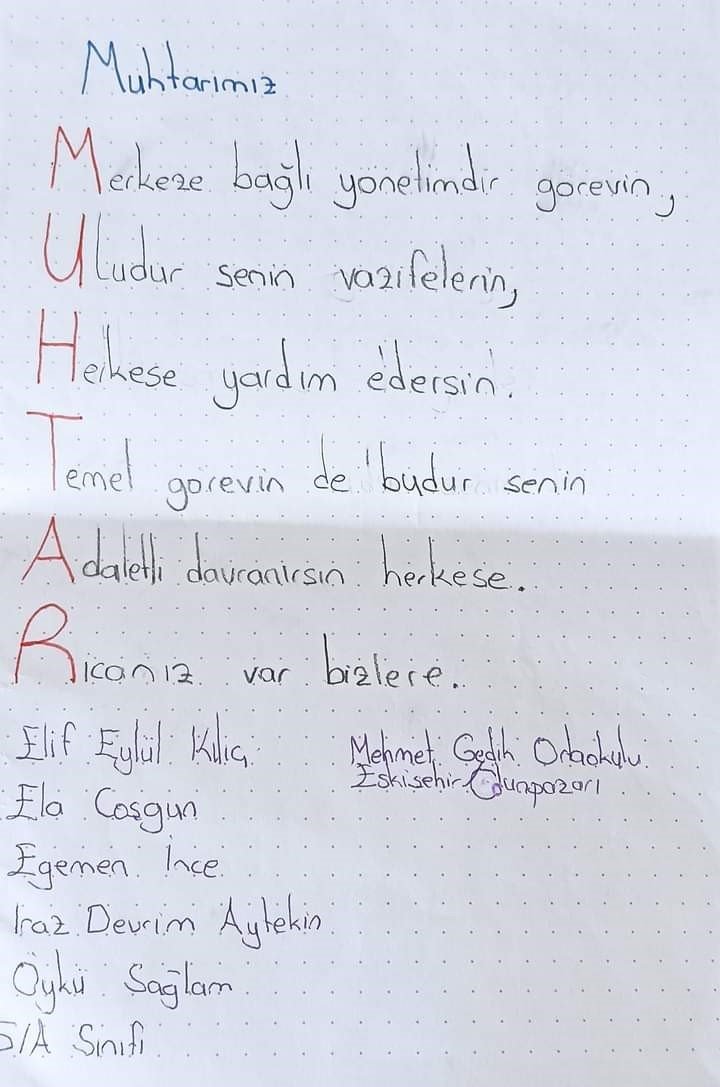 Muhtarımız
Merkeze bağlı yönetimdir görevin,
Uludur senin vazifelerin,
Herkese yardım edersin.
Temel görevin de budur senin
Adaletli davranırsın herkese.
Ricanız var bizlere.
Elif Eylül Kılıç
Ela Coşgun
Egemen İnce
Iraz Devrim Aytekin
Öykü Sağlam
5/A Sınıfı
Mehmet Gedik Ortaokulu
Eskişehir/Odunpazarı